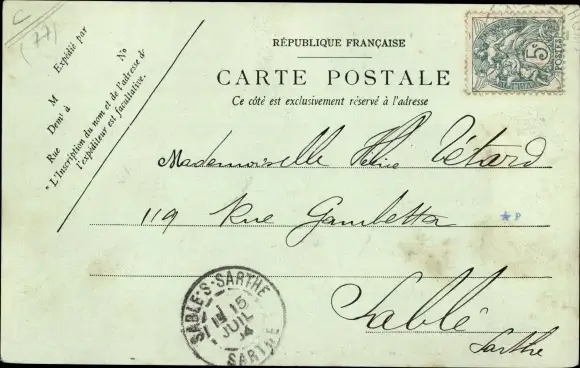 C
(77)
RÉPUBLIQUE FRANÇAISE
CARTE POSTALE
Ce côté est exclusivement réservé à l'adresse
5c
POSTES
Expédié par
M
Demt à
Rue No
"L'Inscription du nom et de l'adresse de
l'expéditeur est facultative.
Mademoiselle Tétard
119 Rue Gambetta
P
Sablé
Sarthe
SABLE-S-SARTHE
15
JUIL
04
SARTHE